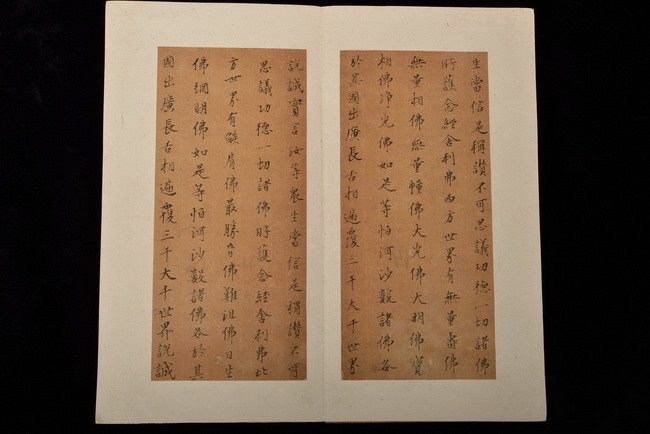 生當信是稱讚不可思議功德一切諸佛
所護念經舍利弗西方世界有無量壽佛
無量相佛無量幢佛大光佛大明佛寶
相佛淨光佛如是等恒河沙數諸佛各
於其國出廣長舌相遍覆三千大千世界
說誠實言汝等衆生當信是稱讚不可
思議功德一切諸佛所護念經舍利弗北
方世界有燄肩佛最勝音佛難沮佛日生
佛網明佛如是等恒河沙數諸佛各於其
國出廣長舌相遍覆三千大千世界說誠